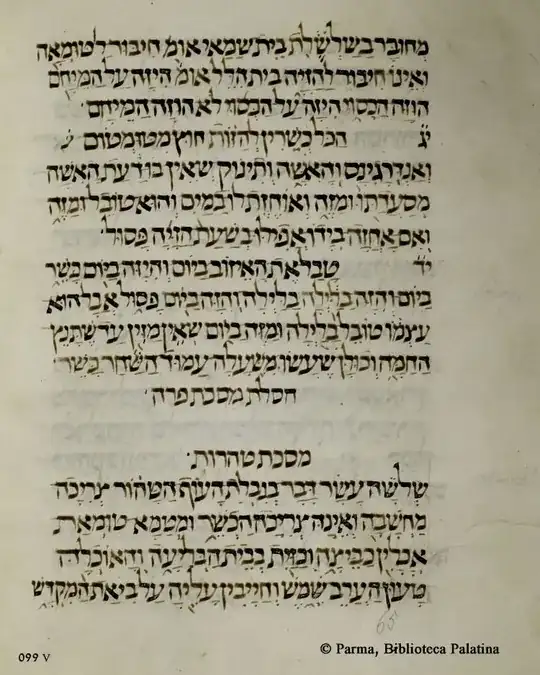 מחובר בשלשלת בית שמאי אומ' חיבור לטומאה
ואינו חיבור להזיה בית הלל אומ' היזה על המיחם
הוזה הכסוי היזה על הכסוי לא הוזה המיחם
יג הכל כשרין להזות חוץ מטומטום
ואנדרגינס והאשה ותינוק שאין בו דעת האשה
מסעדתו ומזה ואוחזת לו במים והוא טובל ומזה
ואם אחזה בידו אפילו בשעת הזיה פסול
יד טבל את האזוב ביום והיזה ביום כשר
ביום והזה בלילה בלילה והזה ביום פסול אבל הוא
עצמו טובל בלילה ומזה ביום שאין מזין עד שתנץ
החמה וכולן שעשו משעלה עמוד השחר כשר
חסלת מסכת פרה
מסכת טהרות
שלשה עשר דבר בנבלת העוף הטהור צריכה
מחשבה ואינה צריכה הכשר ומטמא טומאת
אכלין כביצה וכזית בבית הבליעה והאוכלה
טעון הערב שמש וחייבין עליה על ביאת המקדש
65
099 V
© Parma, Biblioteca Palatina